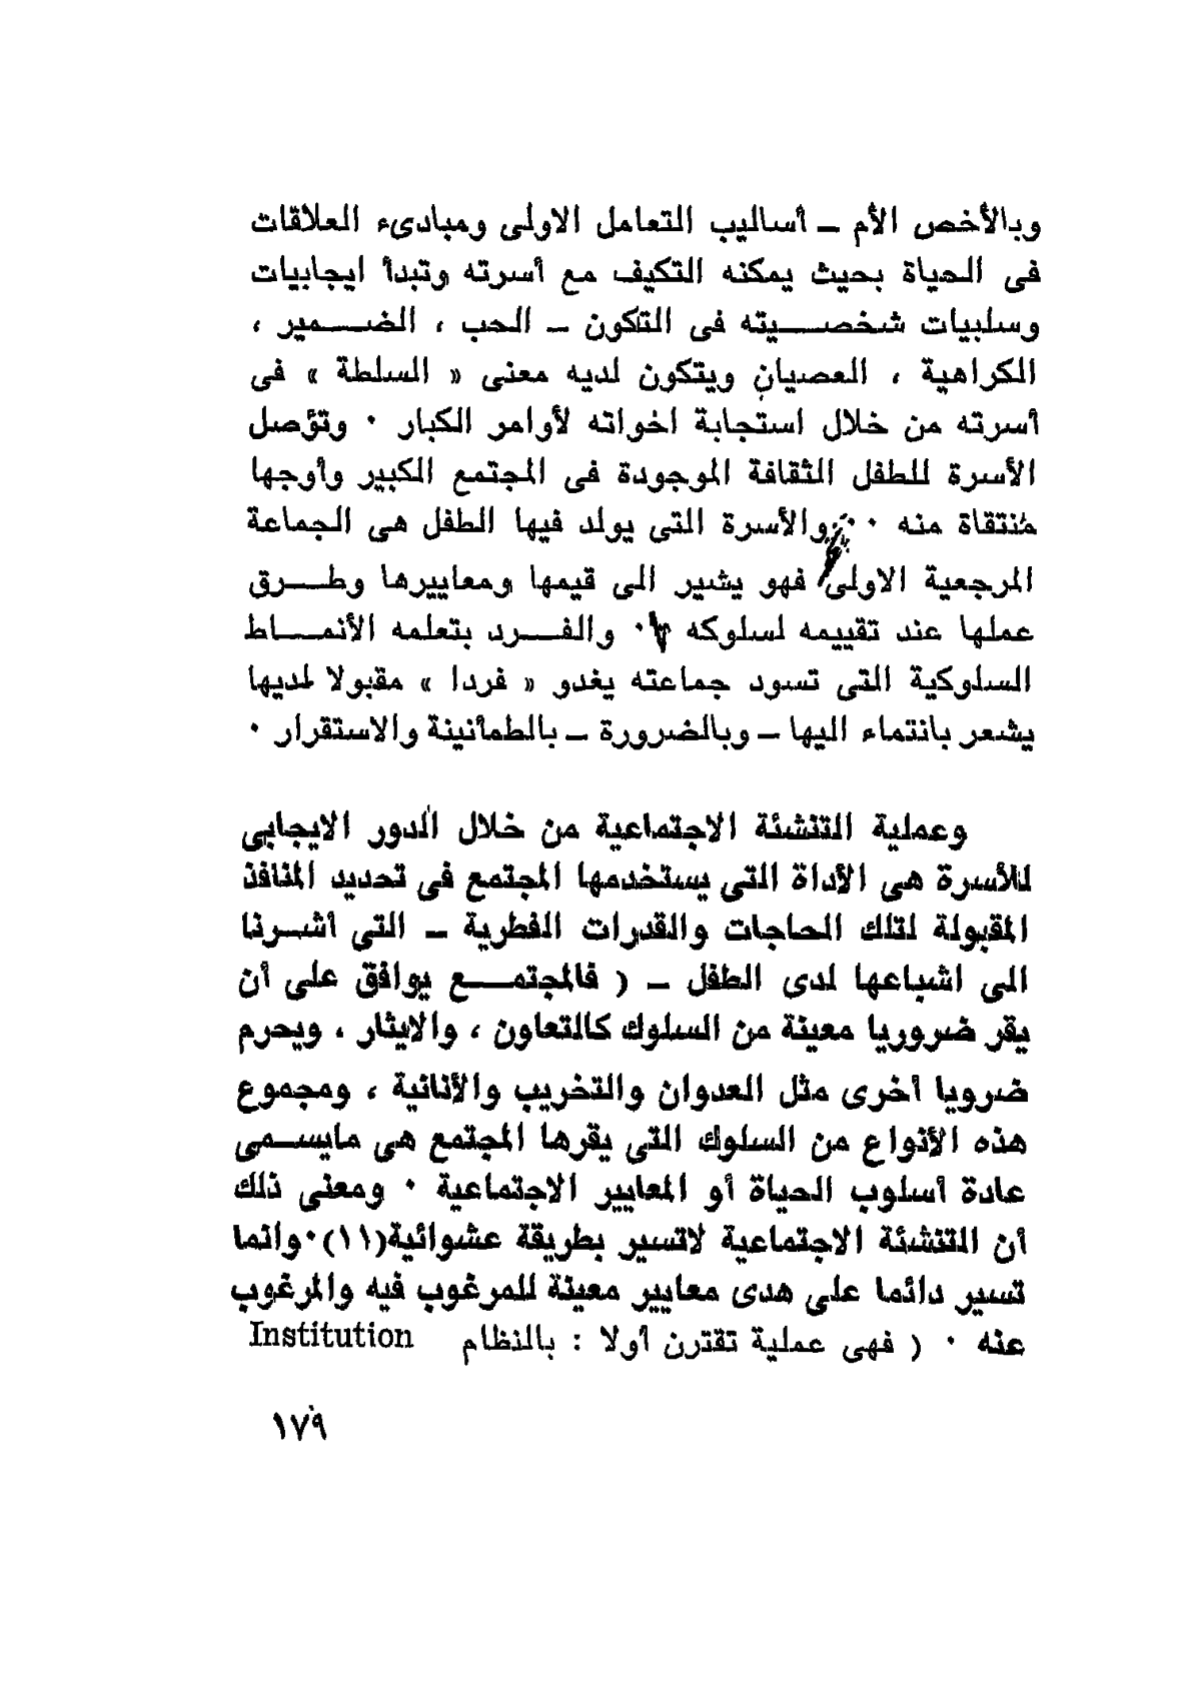 وبالأخص الأم – أساليب التعامل الاولى ومبادىء العلاقات
فى الحياة بحيث يمكنه التكيف مع أسرته وتبدأ ايجابيات
وسلبيات شخصيته فى التكون – الحب ، الضمير ،
الكراهية ، العصيان ويتكون لديه معنى « السلطة » فى
أسرته من خلال استجابة اخواته لأوامر الكبار ٠ وتؤصل
الأسرة للطفل الثقافة الموجودة فى المجتمع الكبير وأوجها
منتقاة منه ٠٠ والأسرة التى يولد فيها الطفل هى الجماعة
المرجعية الاولى فهو يشير الى قيمها ومعاييرها وطرق
عملها عند تقييمه لسلوكه ٠ والفرد بتعلمه الأنماط
السلوكية التى تسود جماعته يغدو « فردا » مقبولا لديها
يشعر بانتماء اليها – وبالضرورة – بالطمأنينة والاستقرار ٠
وعملية التنشئة الاجتماعية من خلال الدور الايجابى
للأسرة هى الأداة التى يستخدمها المجتمع فى تحديد المنافذ
المقبولة لتلك الحاجات والقدرات الفطرية – التى أشرنا
الى اشباعها لدى الطفل – ( فالمجتمع يوافق على أن
يقر ضروريا معينة من السلوك كالتعاون ، والايثار ، ويحرم
ضرويا أخرى مثل العدوان والتخريب والأنانية ، ومجموع
هذه الأنواع من السلوك التى يقرها المجتمع هى مايسمى
عادة أسلوب الحياة أو المعايير الاجتماعية ٠ ومعنى ذلك
أن التنشئة الاجتماعية لاتسير بطريقة عشوائية(١١)٠وانما
تسير دائما على هدى معايير معينة للمرغوب فيه والمرغوب
عنه ٠ ( فهى عملية تقترن أولا : بالنظام Institution
١٧٩